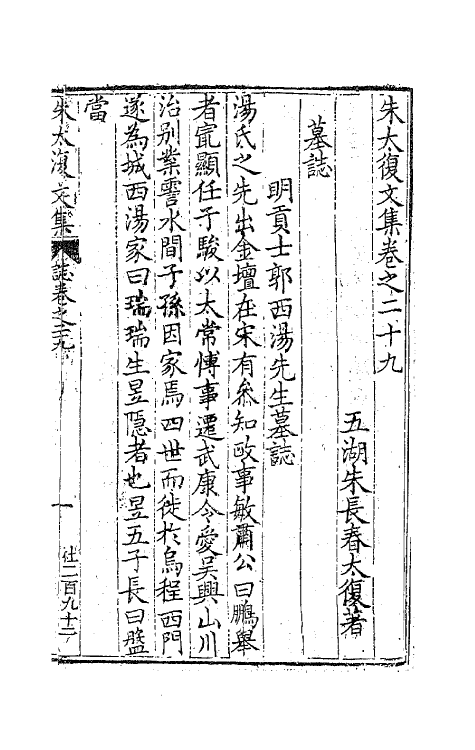 朱太復文集卷之二十九
五湖朱長春太復著
墓誌
明貢士郭西湯先生墓誌
湯氏之先出金壇在宋有叅知政事敏肅公曰鵬舉
者最顯任子駿以太常愽事遷武康令愛吴興山川
治别業霅水間子孫因家焉四世而徙於烏程西門
遂為城西湯家曰瑞瑞生昱隱者也昱五子長曰盤
當
朱太復文集
誌卷之二九
一
仕二百九十二